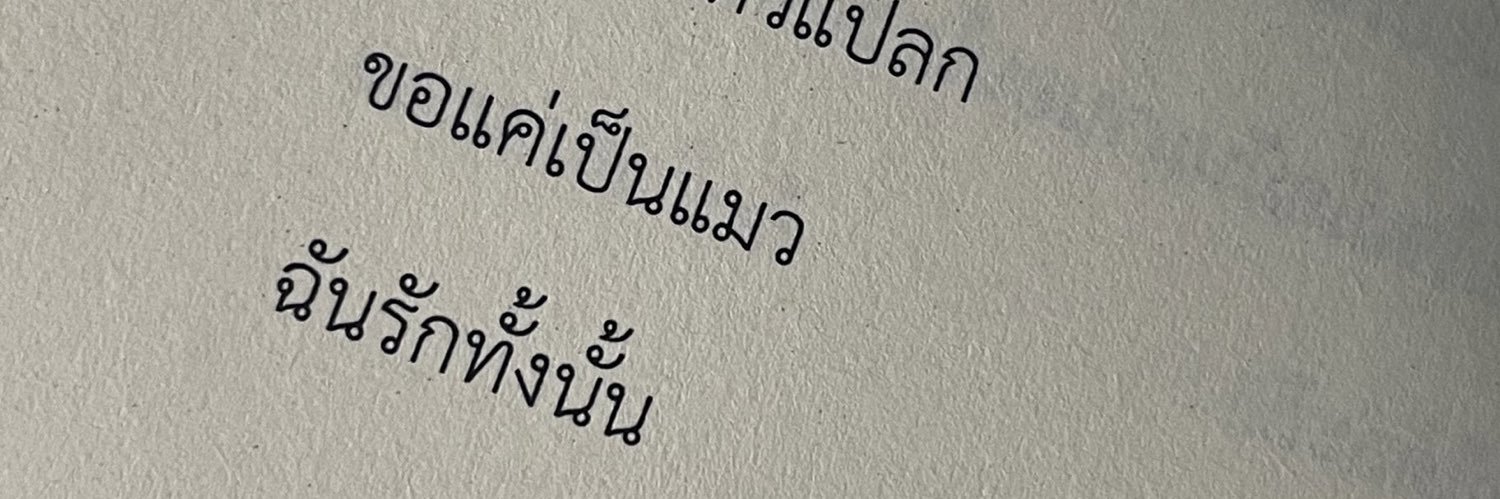 แปลก
ขอแค่เป็นแมว
ฉันรักทั้งนั้น